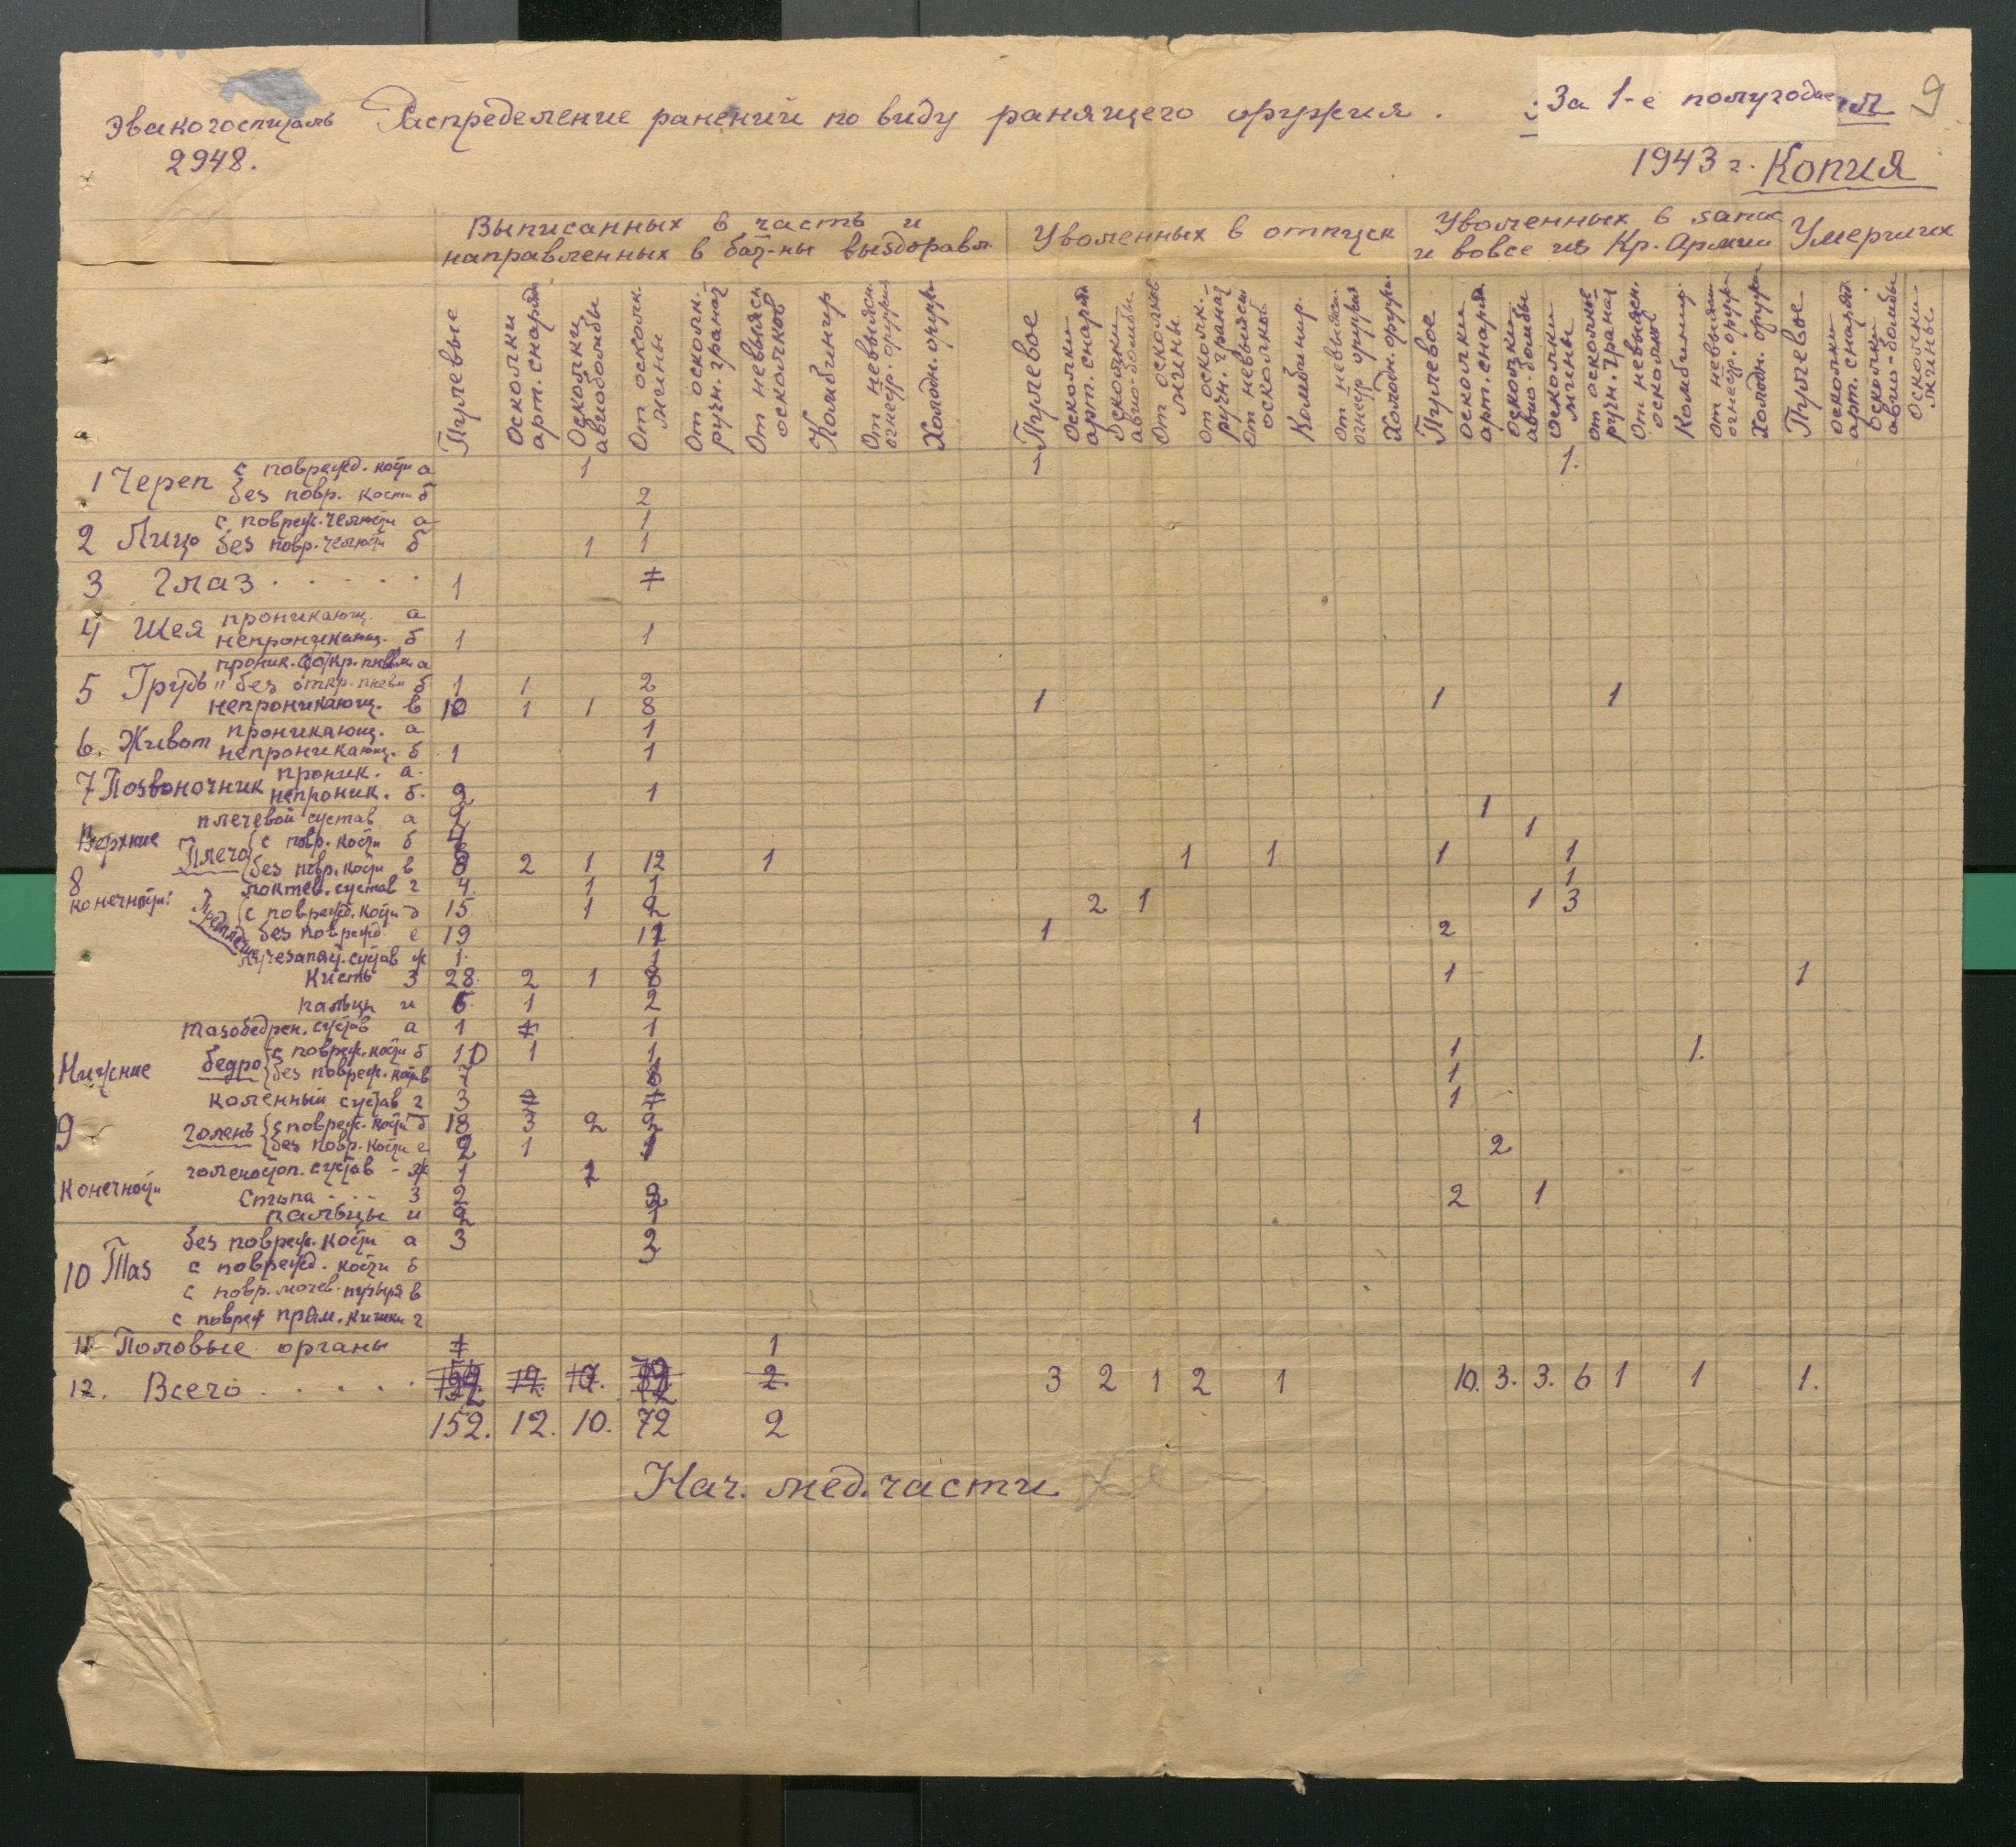 Эвакогоспиталь Распределение ранений по виду ранящего оружия. За 1-е полугодие 9
2948. 1943 г. Копия
Выписанных в часть и направленных в бат-ны выздоравл.
Уволенных в отпуск
Уволенных в запас и вовсе из Кр. Армии
Умерших
Пулевые
Осколки арт. снаряда
Осколки авиобомбы
От осколк. мины
От осколк. ручн. гранат
От невыясн осколков
Комбинир
От невыясн. огнестр. оружия
Холодн. оружи
Пулевое
Осколки арт. снаряд
Осколки авио-бомбы
От осколков мины
От осколк. ручн. гранат
От невыясн осколков
Комбинир.
От невыясн. огнестр. оружия
Холодн. оружи
Пулевое
Осколки арт. снаря
Осколки авио-бомбы
Осколки мины
от осколков ручн. гранат
От невыясн. осколков
Комбинир.
от невыясн огнестр. оруж
Холодн. оружи
Пулевое
осколки арт. снаряд
осколки авио-бомбы
Осколки мины
1 Череп с поврежд. кости а 1 1 1.
без повр. кости б 2
2 Лицо с повреж. челюсти а 1
без повр. челюсти б 1 1
3 Глаз . . . . . 1
4 Шея проникающ. а
непроникающ. б 1 1
5 Грудь проник. с откр. пневм а
" без откр. пневм б 1 1 2
непроникающ. в 10 1 1 8 1 1 1
6. Живот проникающ. а 1
непроникающ. б 1 1
7 Позвоночник проник. а.
непроник. б. 2 1 1
Верхние 8 конечности:
плечевой сустав а 2 1
Плечо с повр. кости б
без повр. кости в 8 2 1 12 1 1 1 1 1
локтев. сустав г 4. 1 1 1
Предплечье с поврежд. кости д 15 1 2 2 1 1 3
без поврежд е 19 1 2
лучезапяст. сустав ж 1. 1
Кисть з 28. 2 1 8 1 1
пальцы и 1 2
Нижние 9 Конечности
тазобедрен. сустав а 1 1
бедро с повреж. кости б 10 1 1 1 1.
без повреж. кости в 1
коленный сустав г 3 1
голень с повреж. кости д 18 3 2 2 1
без повр. кости е 2 1 2
голеностоп. сустав - ж 1
Стопа . . . з 2 2 1
пальцы и 2 1
10 Таз без повреж. кости а 3 2
с поврежд. кости б
с повр. мочев. пузыря в
с повреж прям. кишки г
11 Половые органы 1
12. Всего . . . . . 3 2 1 2 1 10. 3. 3. 6 1 1 1.
152. 12. 10. 72 2
Нач. мед. части